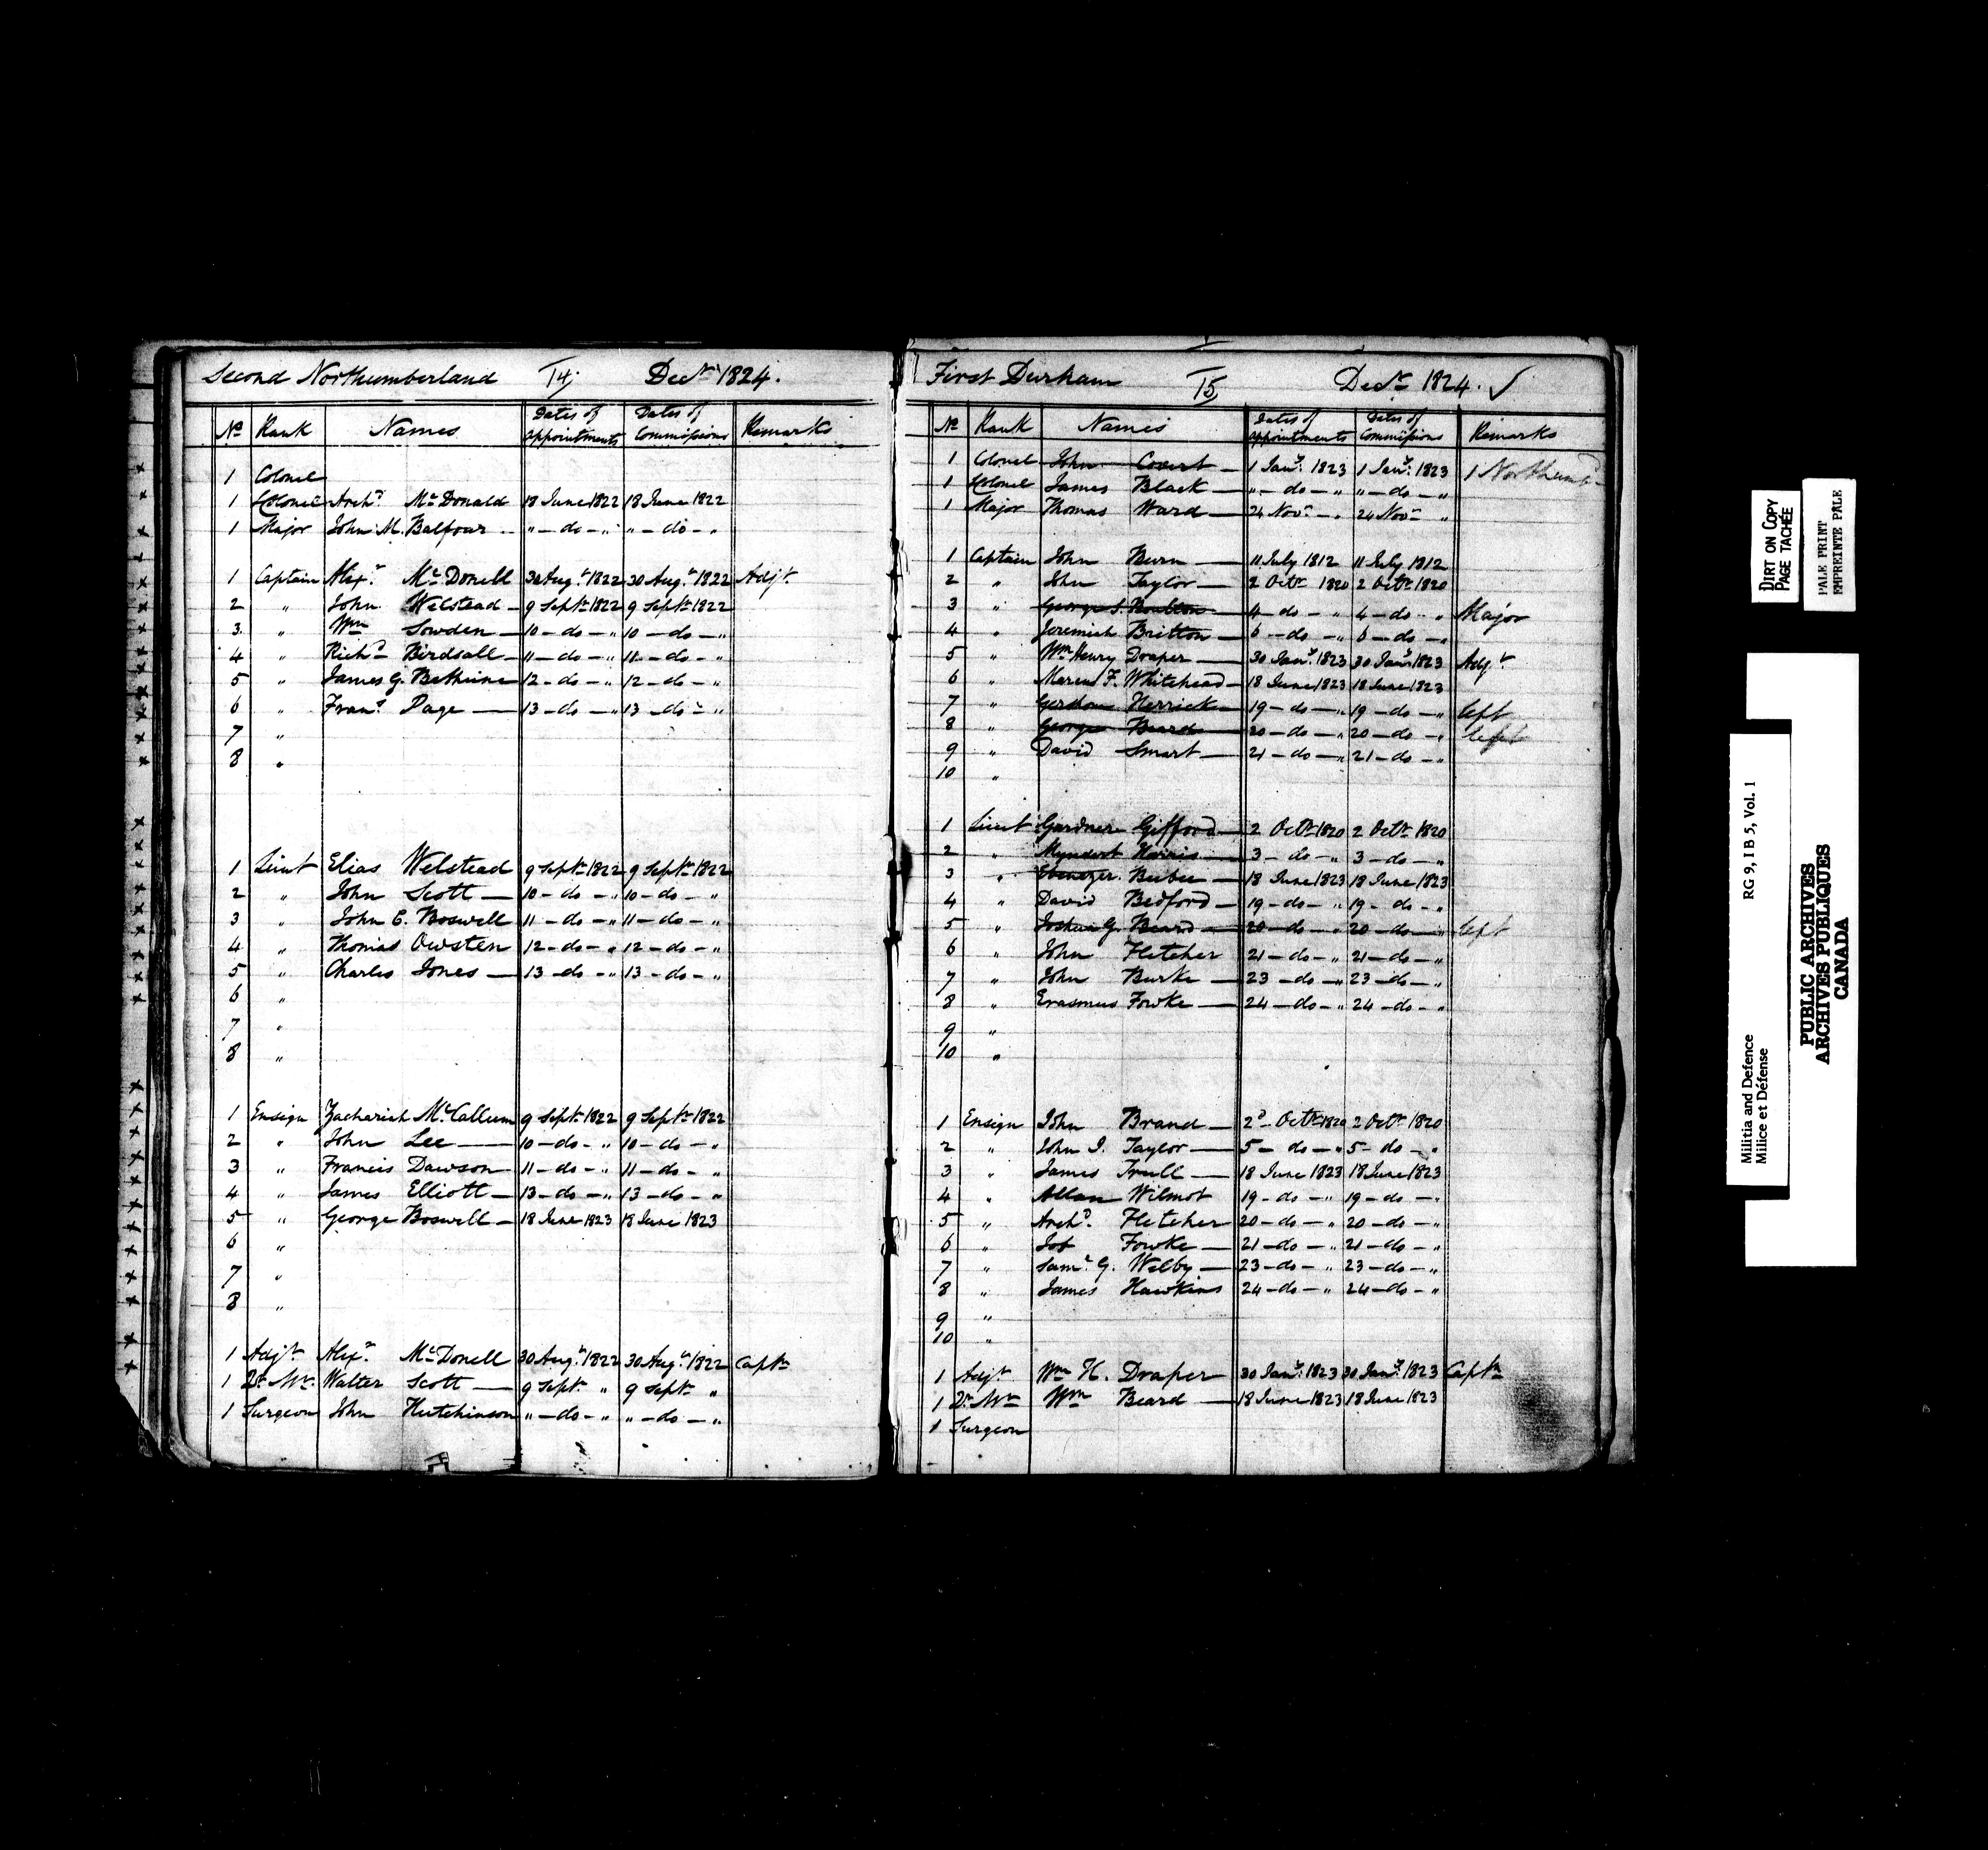 Second Northumberland 14, Decr 1824.
No Rank Names Dates of appointments Dates of Commissions Remarks
1 Colonel
1 Lt Colonel Archd McDonald 18 June 1822 18 June 1822
1 Major John M. Balfour " - do - " " - do - "
1 Captain Alexr McDonell 30 Augt 1822 30 Augt 1822 Adjt
2 " John Welstead 9 Septr 1822 9 Septr 1822
3 " Wm Sowden 10 - do - " 10 - do - "
4 " Richd Birdsall 11 - do - " 11 - do - "
5 " James G. Bethune 12 - do - " 12 - do - "
6 " Frans Page 13 - do - " 13 - do - "
7 "
8 "
1 Lieut Elias Welstead 9 Septr 1822 9 Septr 1822
2 " John Scott 10 - do - " 10 - do - "
3 " John C. Boswell 11 - do - " 11 - do - "
4 " Thomas Owsten 12 - do - " 12 - do - "
5 " Charles Jones 13 - do - " 13 - do - "
6 "
7 "
8 "
1 Ensign Zachariah McCallum 9 Septr 1822 9 Septr 1822
2 " John Lee 10 - do - " 10 - do - "
3 " Francis Dawson 11 - do - " 11 - do - "
4 " James Elliott 13 - do - " 13 - do - "
5 " George Boswell 18 June 1823 18 June 1823
6 "
7 "
8 "
1 Adjt Alexr McDonell 30 Augt 1822 30 Augt 1822 Captn
1 Qr Mr Walter Scott 9 Septr " 9 Septr "
1 Surgeon John Hutchinson " - do - " " - do - "
First Durham 15, Decr 1824. ✓
No Rank Names Dates of appointments Dates of Commissions Remarks
1 Colonel John Covert 1 Jany 1823 1 Jany 1823 1 Northumbd
1 Lt Colonel James Black " - do - " " - do - "
1 Major Thomas Ward 24 Novr - " 24 Novr "
1 Captain John Burn 11 July 1812 11 July 1812
2 " John Taylor 2 Octr 1820 2 Octr 1820
3 " George S. Boulton 4 - do - " 4 - do - " Major
4 " Jeremiah Britton 6 - do - " 6 - do - "
5 " Wm Henry Draper 30 Jany 1823 30 Jany 1823 Adjt
6 " Marcus F. Whitehead 18 June 1823 18 June 1823
7 " Gershom Herrick 19 - do - " 19 - do - " left
8 " George Beard 20 - do - " 20 - do - " left
9 " David Smart 21 - do - " 21 - do - "
10 "
1 Lieut Gardner Gifford 2 Octr 1820 2 Octr 1820
2 " Myndert Harris 3 - do - " 3 - do - "
3 " Ebenezer Beebee 18 June 1823 18 June 1823
4 " David Bedford 19 - do - " 19 - do - "
5 " Joshua G. Beard 20 - do - " 20 - do - " left
6 " John Fletcher 21 - do - " 21 - do - "
7 " John Burke 23 - do - " 23 - do - "
8 " Erasmus Fowke 24 - do - " 24 - do - "
9 "
10 "
1 Ensign John Brand 2d Octr 1820 2 Octr 1820
2 " John I. Taylor 5 - do - " 5 - do - "
3 " James Trull 18 June 1823 18 June 1823
4 " Allan Wilmot 19 - do - " 19 - do - "
5 " Archd Fletcher 20 - do - " 20 - do - "
6 " Job Fowke 21 - do - " 21 - do - "
7 " Saml G. Welby 23 - do - " 23 - do - "
8 " James Hawkins 24 - do - " 24 - do - "
9 "
10 "
1 Adjt Wm H. Draper 30 Jany 1823 30 Jany 1823 Captn
1 Qr Mr Wm Beard 18 June 1823 18 June 1823
1 Surgeon
DIRT ON COPY
PAGE TACHÉE
PALE PRINT
EMPREINTE PÂLE
RG 9, I B 5, Vol. 1
Militia and Defence
Milice et Défense
PUBLIC ARCHIVES
ARCHIVES PUBLIQUES
CANADA